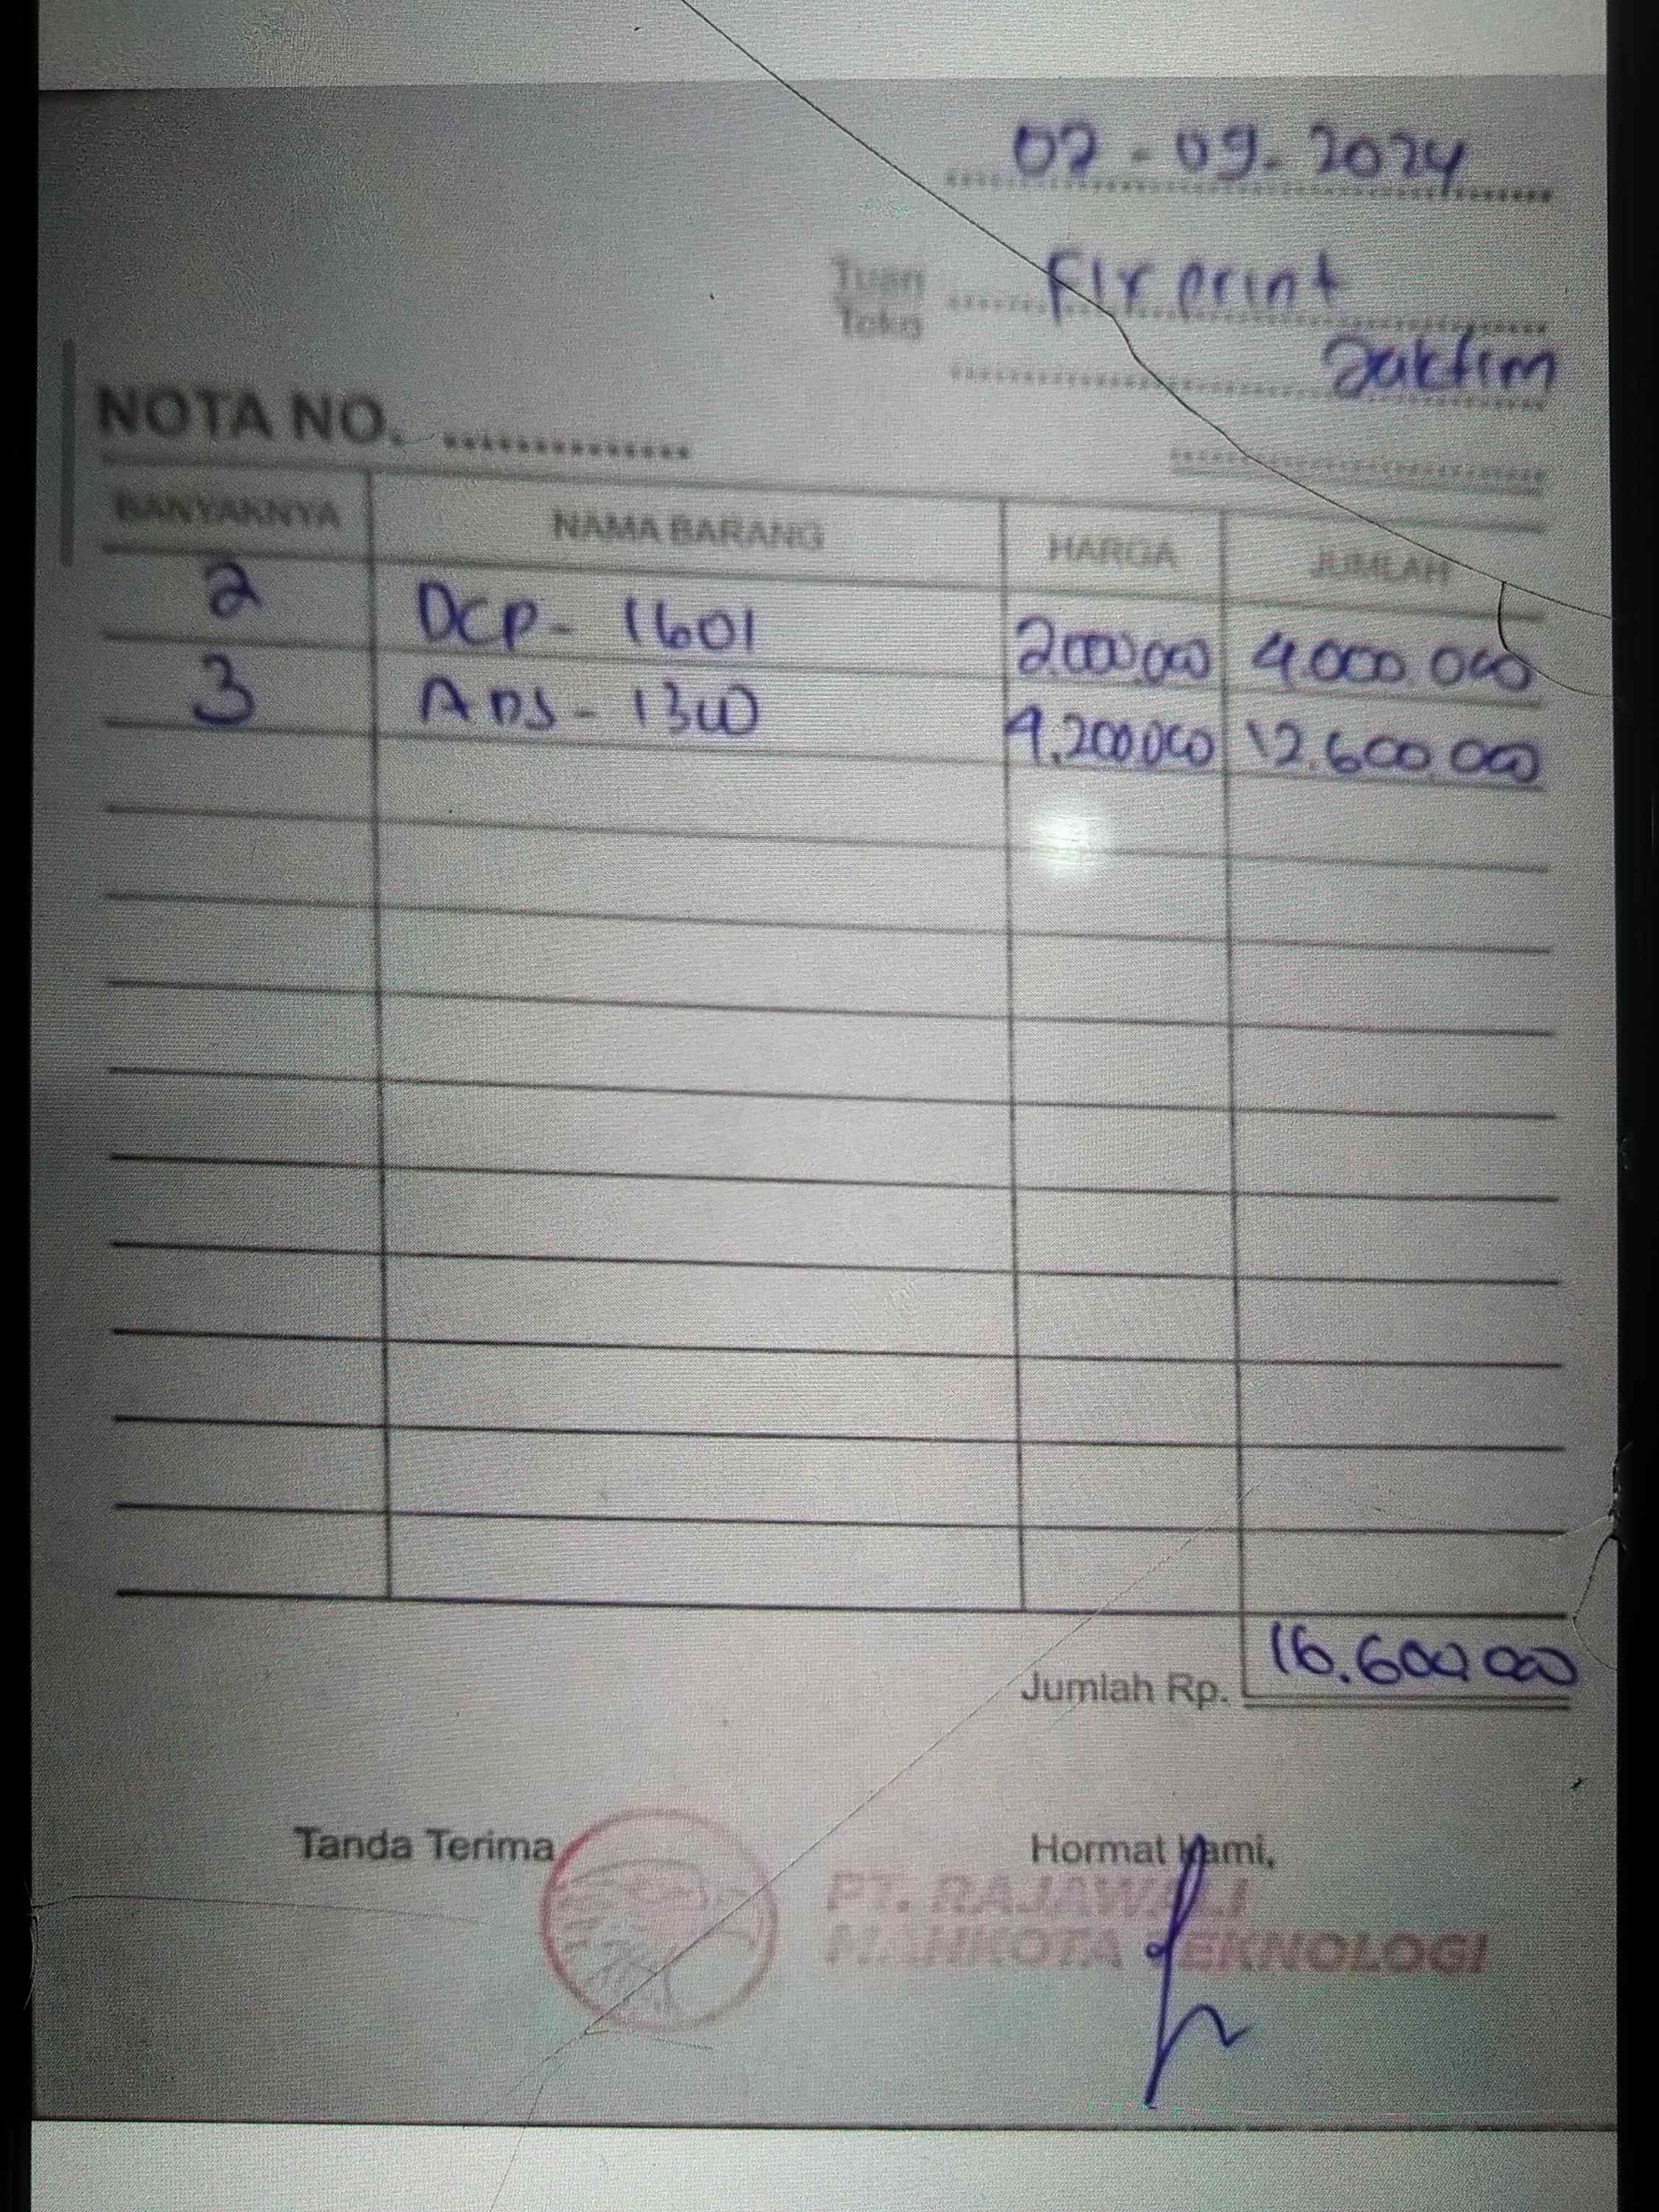 02-09-2024
Tuan
Toko
Fix print
Jaktim
NOTA NO. ..............
BANYAKNYA NAMA BARANG HARGA JUMLAH
2 DCP- 1601 2.000.000 4.000.000
3 ADS- 1300 4.200.000 12.600.000
Jumlah Rp. 16.600.000
Tanda Terima Hormat Kami,
PT. RAJAWALI
MAHKOTA TEKNOLOGI